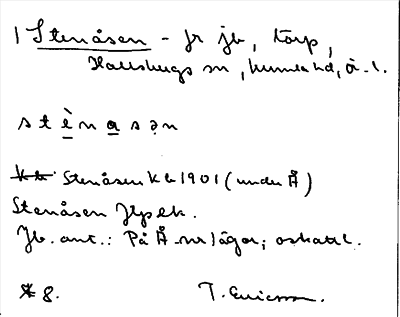 1 Stenåsen – fr jb, torp,
Hallsbergs sn, Kumla hd, Ö-l.
stὲnasən
Stenåsen Kb 1901 (under Å)
Stenåsen Hypek.
Jb. ant.: På Å-s ägor; oskatt.
8.
T. Ericsson.